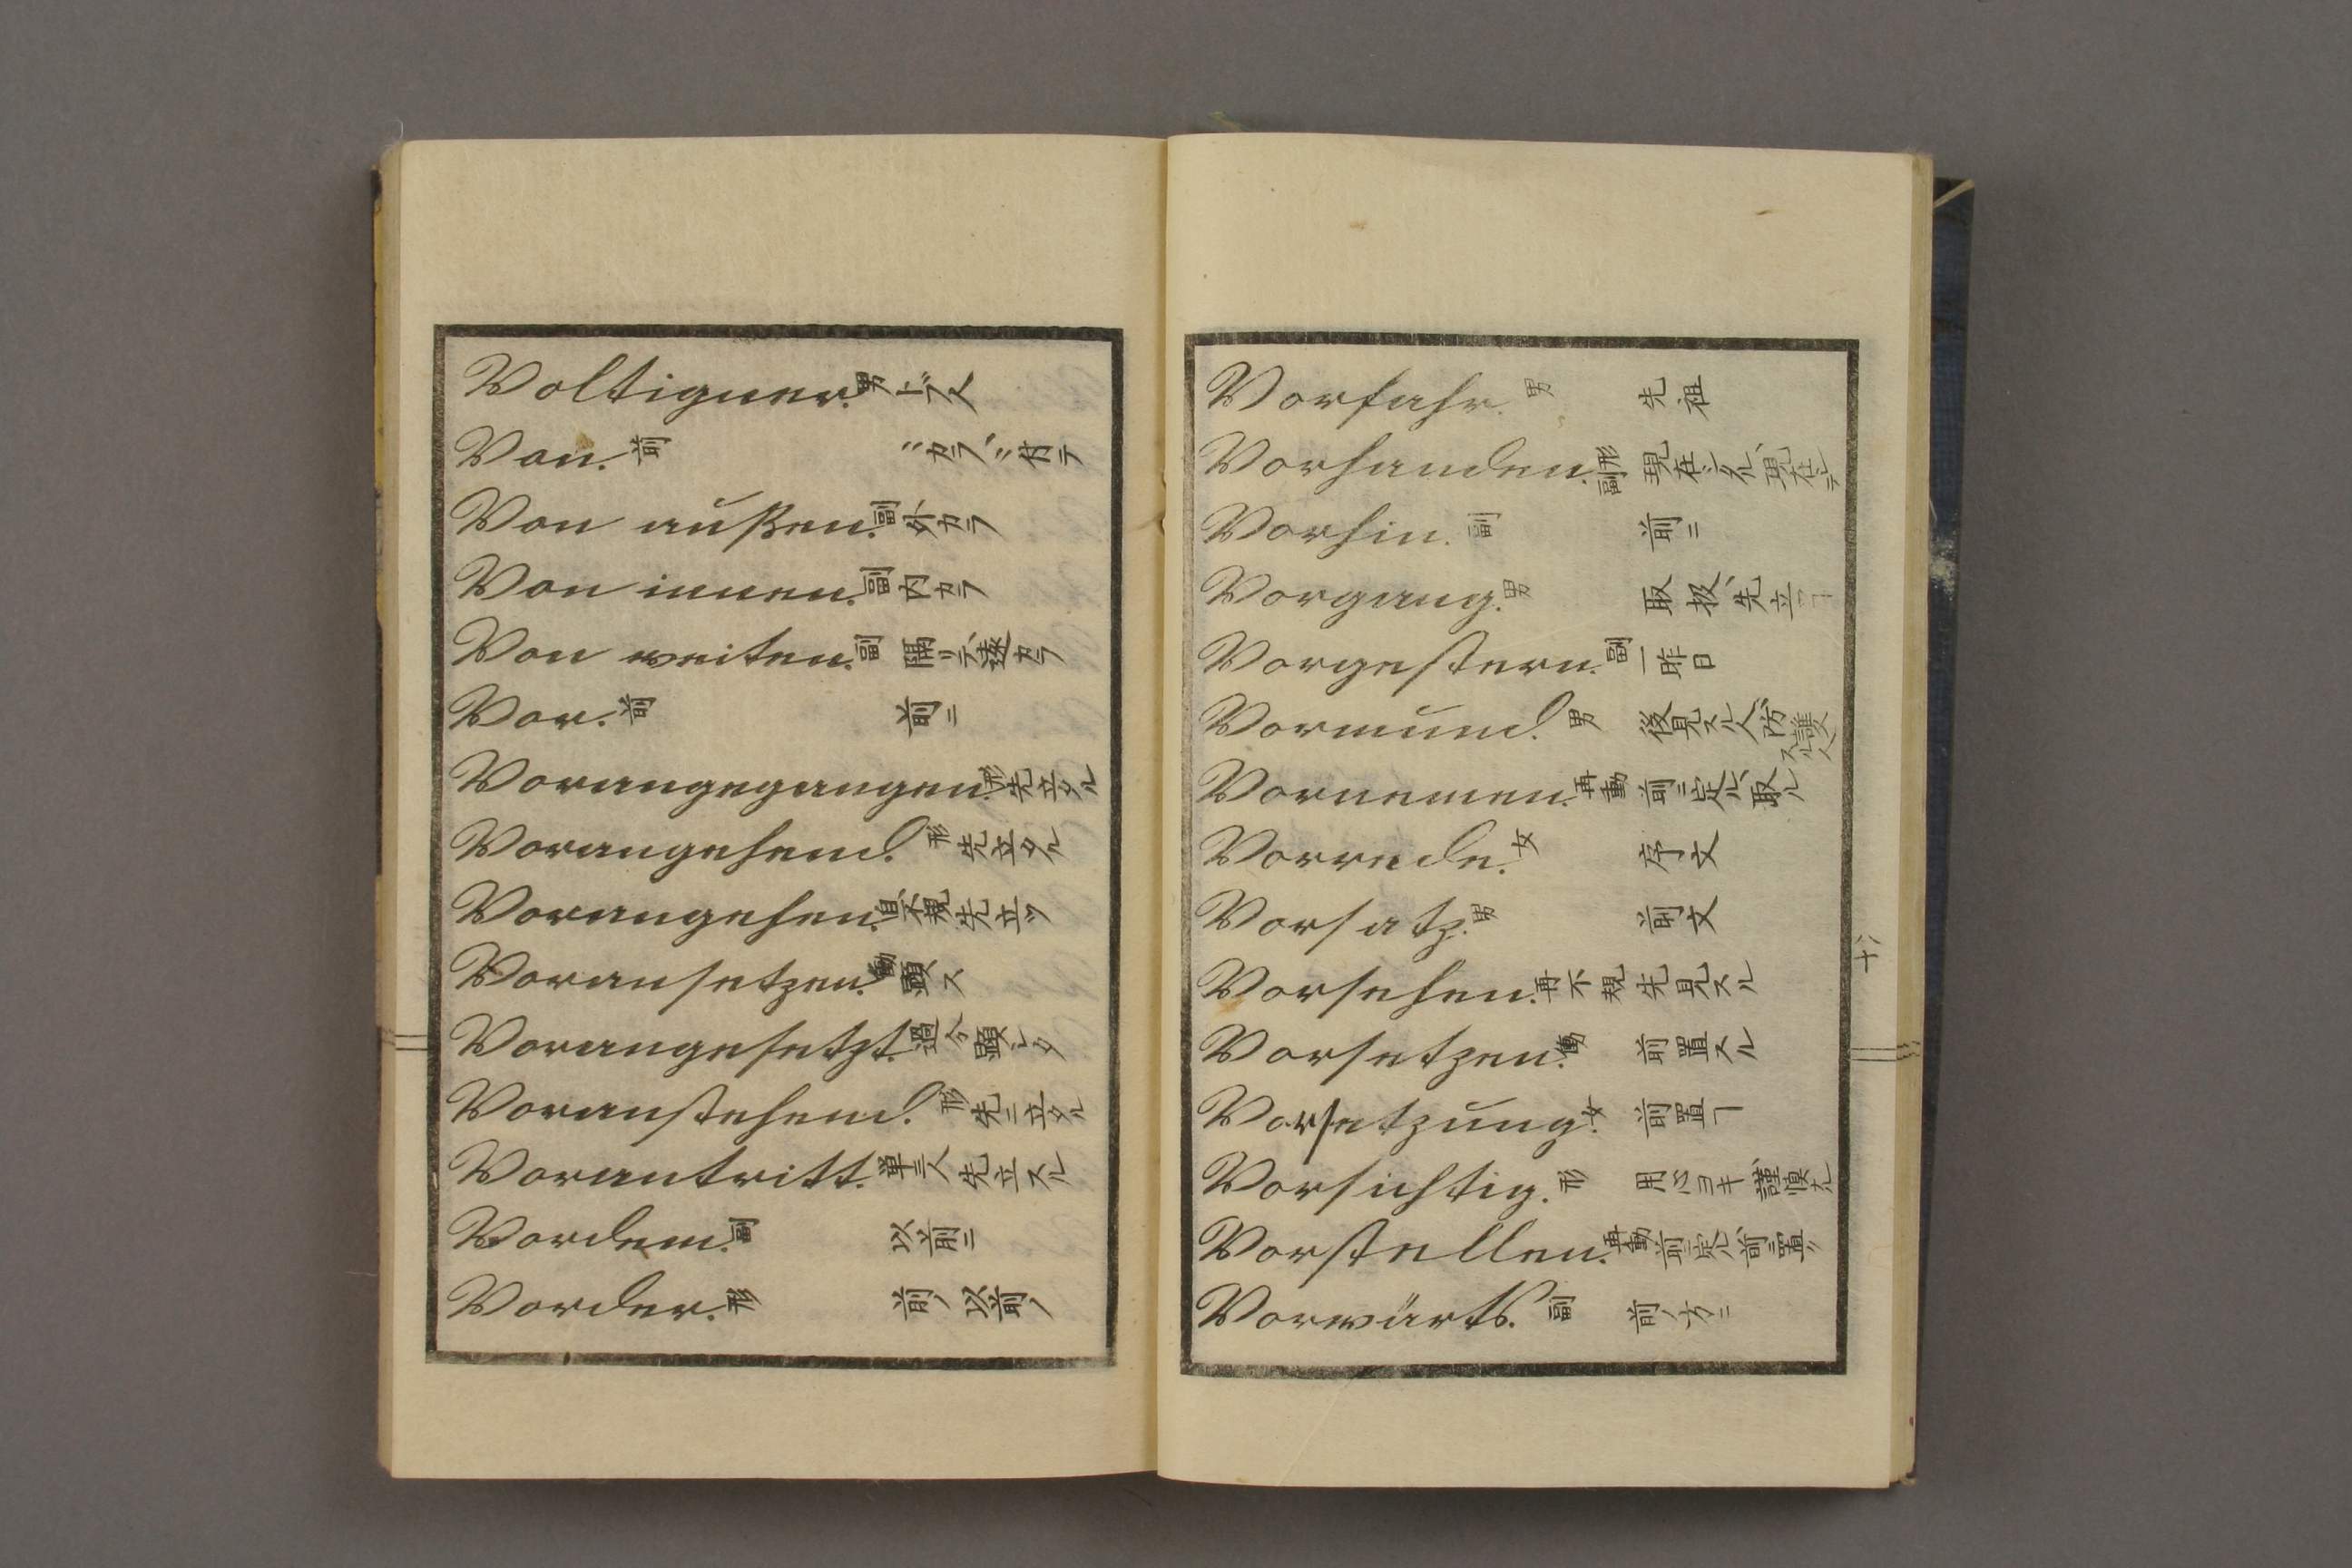 Voltiguer. 男 トブ人
Von. 前 〃カラ、〃付テ
Von außen. 副 外カラ
Von innen. 副 内カラ
Von weiten. 副 隔リテ、遠カラ
Vor. 前 前ニ
Vorangegangen. 形 先立タル
Vorangehend. 形 先立タル
Vorangehen. 自不規 先立ツ
Voransetzen. 動 顕ス
Vorangesetzt. 過分 顕シタ
Voranstehend. 形 先ニ立タル
Vorantritt. 単三人 先立スル
Vordem. 副 以前ニ
Vorder. 形 前ノ、以前ノ
Vorfahr. 男 先祖
Vorhanden. 形副 現在シタル、現在シテ
Vorhin. 副 前ニ
Vorgang. 男 取扱、先立ヿ
Vorgestern. 副 一昨日
Vormund. 男 後見スル人、防護スル人
Vornemen. 再動 前ニ定ル、取ル
Vorrede. 女 序文
Vorsatz. 男 前文
Vorsehen. 再不規 先見スル
Vorsetzen. 動 前置スル
Vorsetzung. 女 前置ヿ
Vorsichtig. 形 用心ヨキ、謹慎ナル
Vorstellen. 再動 前ニ定ル、前ニ置ク
Vorwärts. 副 前ノ方ニ
十八